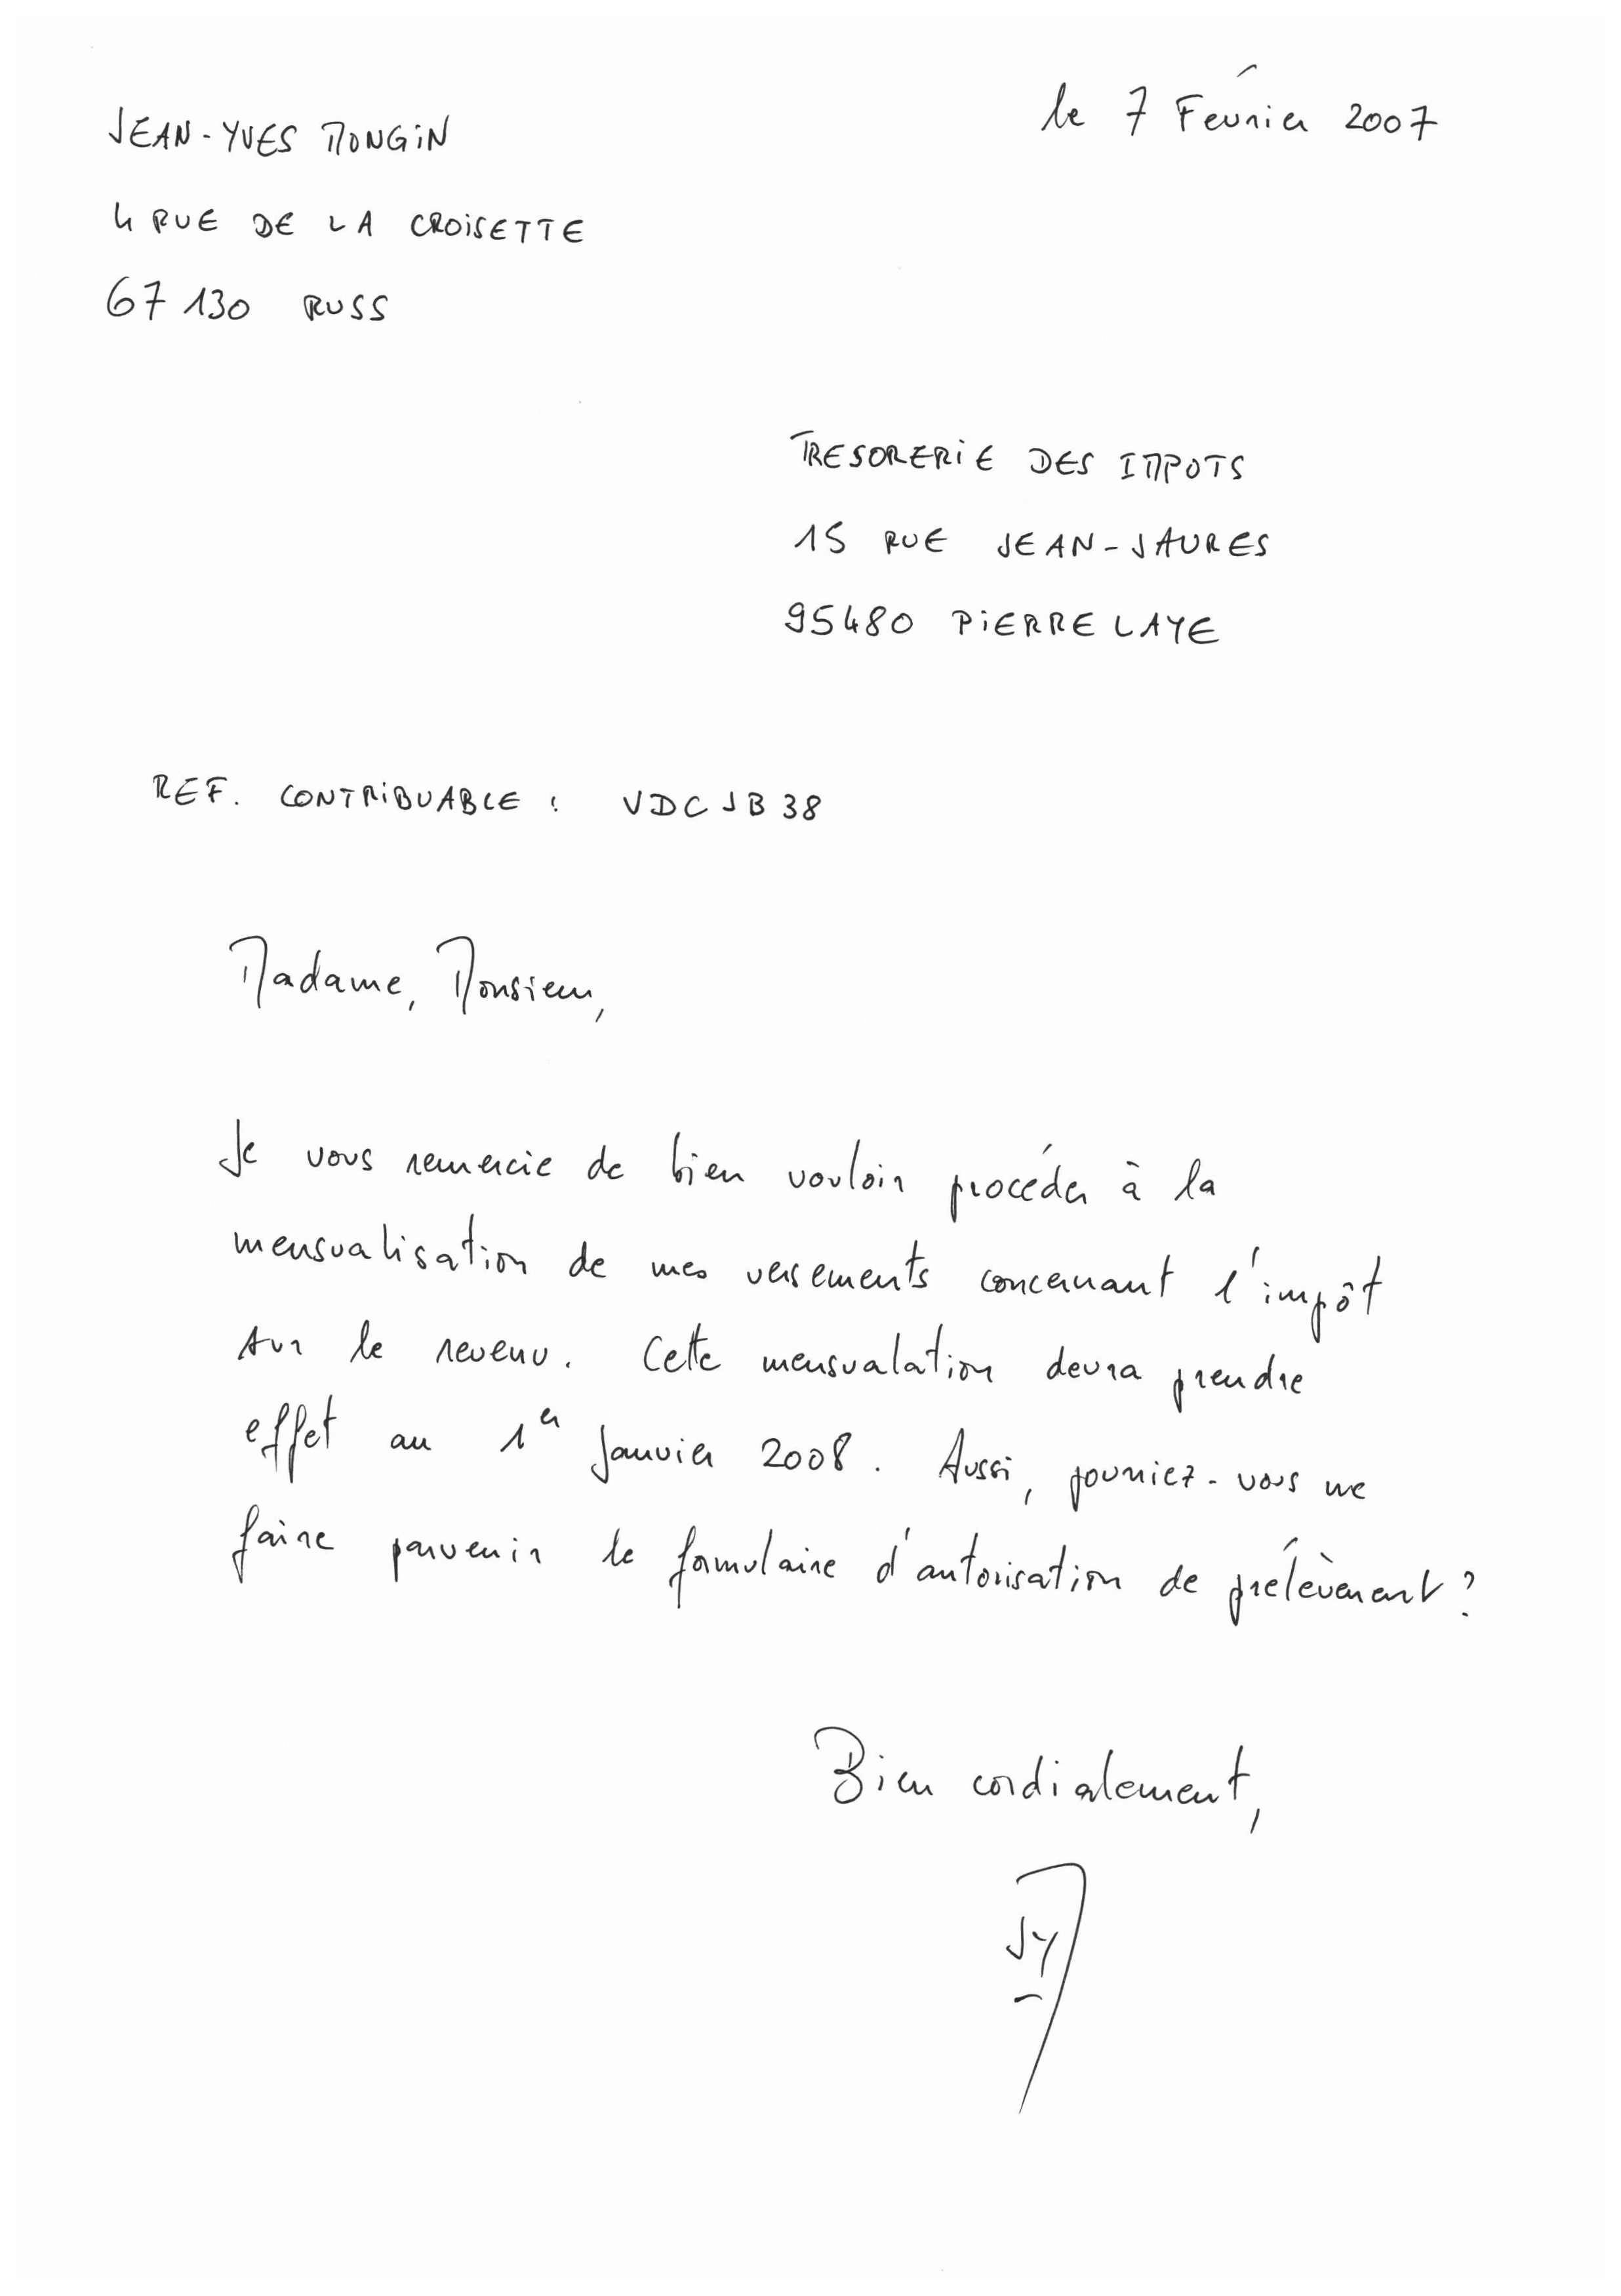 JEAN-YVES MONGIN
le 7 Février 2007
4 RUE DE LA CROISETTE
67130 RUSS
TRESORERIE DES IMPOTS
15 RUE JEAN-JAURES
95480 PIERRELAYE
REF. CONTRIBUABLE : VDCJB38
Madame, Monsieur,
Je vous remercie de bien vouloir procéder à la
mensualisation de mes versements concernant l'impôt
sur le revenu. Cette mensualation devra prendre
effet au 1er Janvier 2008. Aussi, pourriez-vous me
faire parvenir le formulaire d'autorisation de prélèvement ?
Bien cordialement,
JY